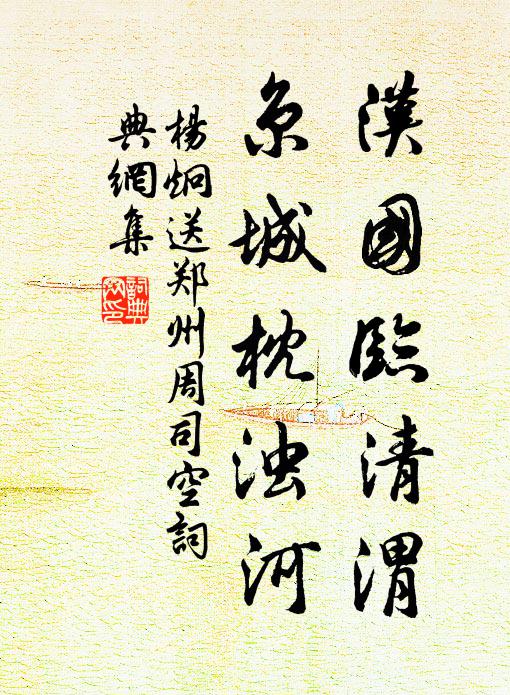 漢國臨清渭
京城枕浊河
杨炯送郑州周司空詞
典網集
詞典